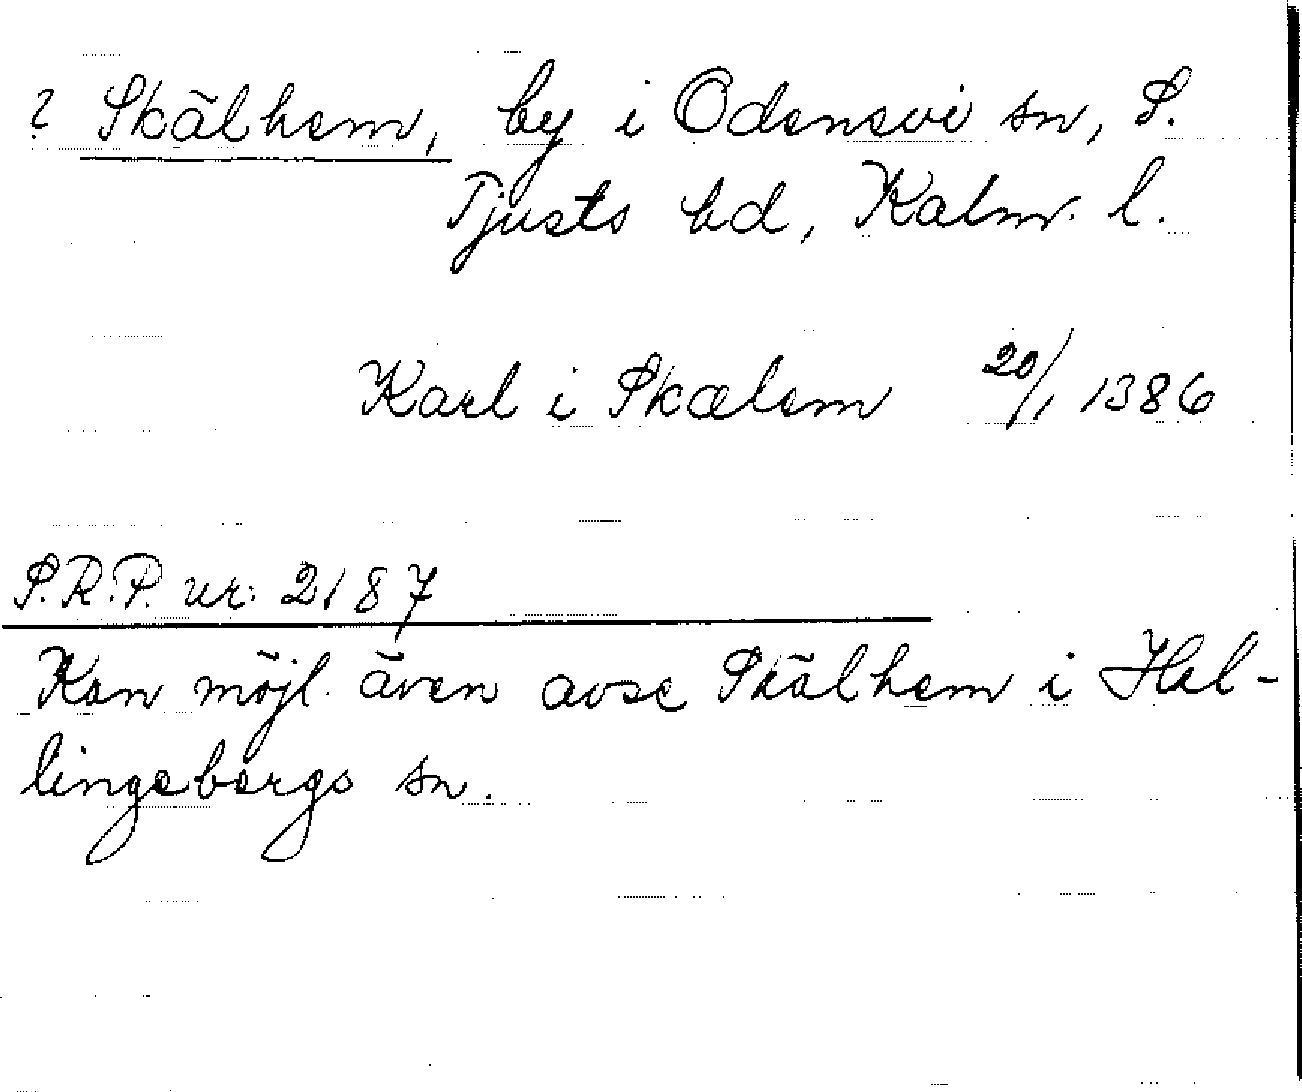 ? Skälhem, by i Odensvi sn, S.
Tjusts hd, Kalm. l.
Karl i Skælem 20/1 1386
S.R.P. nr: 2187
Kan möjl. även avse Skälhem i Hal-
lingebergs sn.